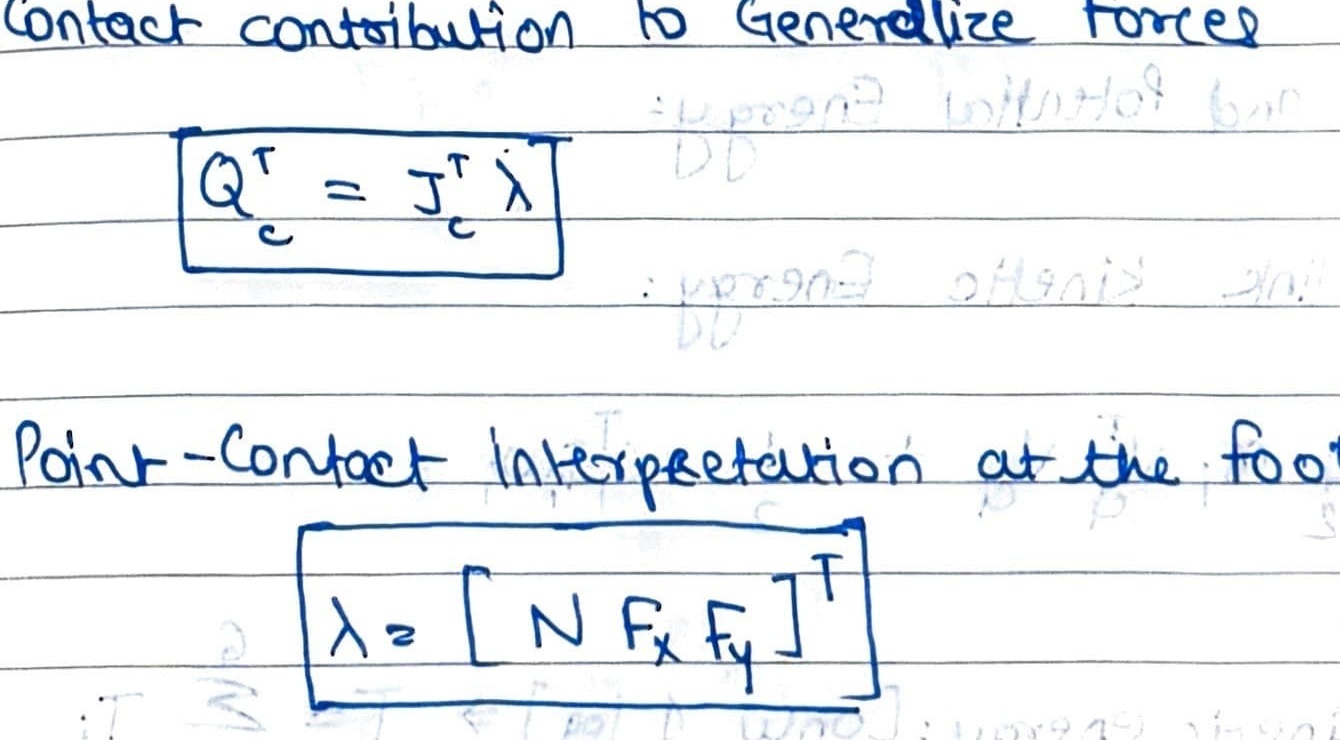 Contact contribution to Generalize Forces
Q_c^T = J_c^T λ
Point-Contact Interpretation at the foot
λ = [ N F_x F_y ]^T